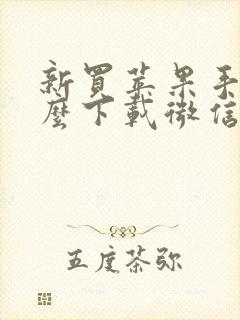 新買苹果手
麼下載微信
五度茶弥